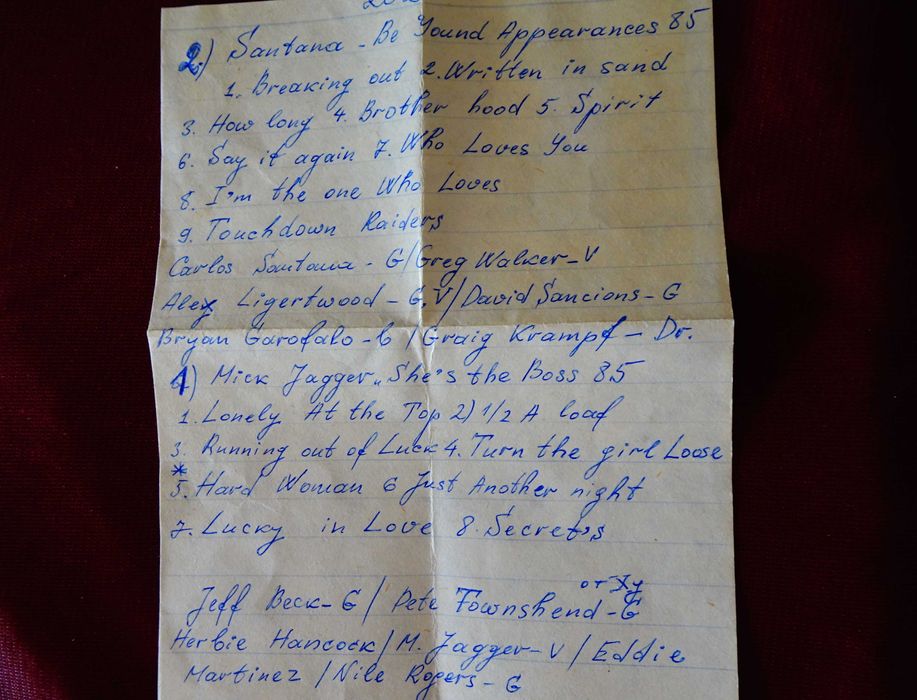 2.) Santana - Be Yound Appearances 85
1. Breaking out 2. Written in sand
3. How long 4. Brother hood 5. Spirit
6. Say it again 7. Who Loves You
8. I'm the one Who Loves
9. Touchdown Raiders
Carlos Santana - G/Greg Walker-V
Alex Ligertwood - G, V/David Sancions - G
Bryan Garofalo - b / Graig Krampf - Dr.
1) Mick Jagger „She's the Boss 85
1. Lonely At the Top 2) 1/2 A loaf
3. Running out of Luck 4. Turn the girl Loose
*
5. Hard Woman 6 Just Another night
7. Lucky in Love 8. Secret's
Jeff Beck - G / Pete Townshend - G
Herbie Hancock / M. Jagger - V / Eddie
Martinez / Nile Rogers - G